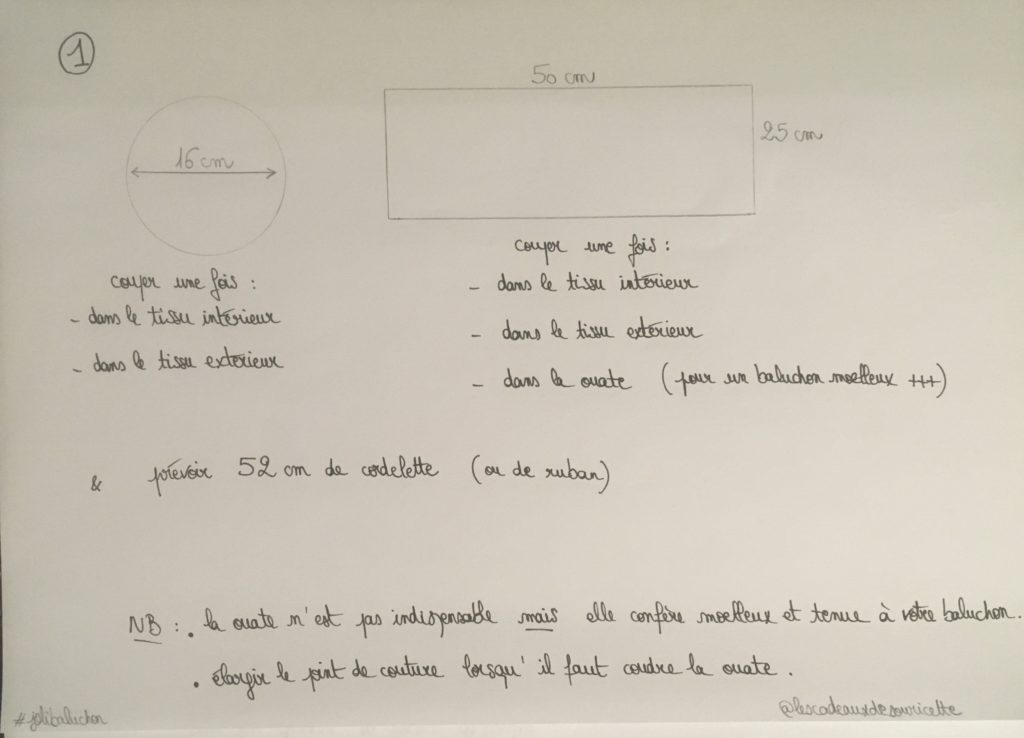 1
50 cm
25 cm
16 cm
couper une fois :
- dans le tissu intérieur
- dans le tissu extérieur
couper une fois :
- dans le tissu intérieur
- dans le tissu extérieur
- dans la ouate (pour un baluchon moelleux +++)
& prévoir 52 cm de cordelette (ou de ruban)
NB : . la ouate n'est pas indispensable mais elle confère moelleux et tenue à votre baluchon.
. élargir le point de couture lorsqu'il faut coudre la ouate.
#jolibaluchon
@lescadeauxdesouricette